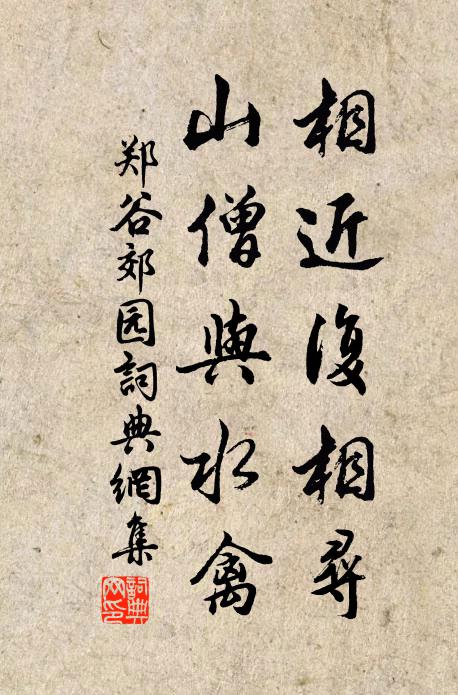 相近復相尋
山僧與水禽
郑谷郊园詞典網集
詞典网印